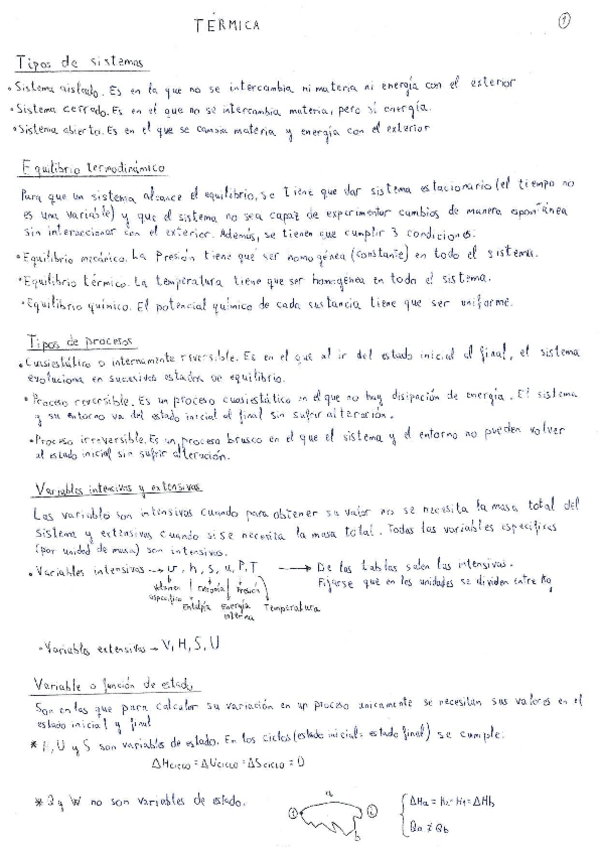 TÉRMICA
1
Tipos de sistemas
• Sistema aislado. Es en la que no se intercambia ni materia ni energía con el exterior
• Sistema cerrado. Es en el que no se intercambia materia, pero sí energía.
• Sistema abierto. Es en el que se cambia materia y energía con el exterior
Equilibrio termodinámico
Para que un sistema alcance el equilibrio, se tiene que dar sistema estacionario (el tiempo no
es una variable) y que el sistema no sea capaz de experimentar cambios de manera espontánea
sin interaccionar con el exterior. Además, se tienen que cumplir 3 condiciones:
• Equilibrio mecánico. La Presión tiene que ser homogénea (constante) en todo el sistema.
• Equilibrio térmico. La temperatura tiene que ser homogénea en todo el sistema.
• Equilibrio químico. El potencial químico de cada sustancia tiene que ser uniforme.
Tipos de procesos
• Cuasiestático o internamente reversible. Es en el que al ir del estado inicial al final, el sistema
evoluciona en sucesivos estados de equilibrio.
• Proceso reversible. Es un proceso cuasiestático en el que no hay disipación de energía. El sistema
y su entorno va del estado inicial al final sin sufrir alteración.
• Proceso irreversible. Es un proceso brusco en el que el sistema y el entorno no pueden volver
al estado inicial sin sufrir alteración.
Variables intensivas y extensivas
Las variables son intensivas cuando para obtener su valor no se necesita la masa total del
sistema y extensivas cuando si se necesita la masa total. Todas las variables específicas
(por unidad de masa) son intensivas.
• Variables intensivas → v, h, s, u, P, T → De las tablas salen las intensivas.
Fijarse que en las unidades se dividen entre kg
volumen específico Entalpía Entropía Energía interna Presión Temperatura
• Variables extensivas → V, H, S, U
Variable o función de estado
Son en las que para calcular su variación en un proceso únicamente se necesitan sus valores en el
estado inicial y final
* H, U y S son variables de estado. En los ciclos (estado inicial = estado final) se cumple.
ΔHciclo = ΔUciclo = ΔSciclo = 0
* Q y W no son variables de estado.
a
1 2
b
ΔHa = H2 - H1 = ΔHb
Qa ≠ Qb